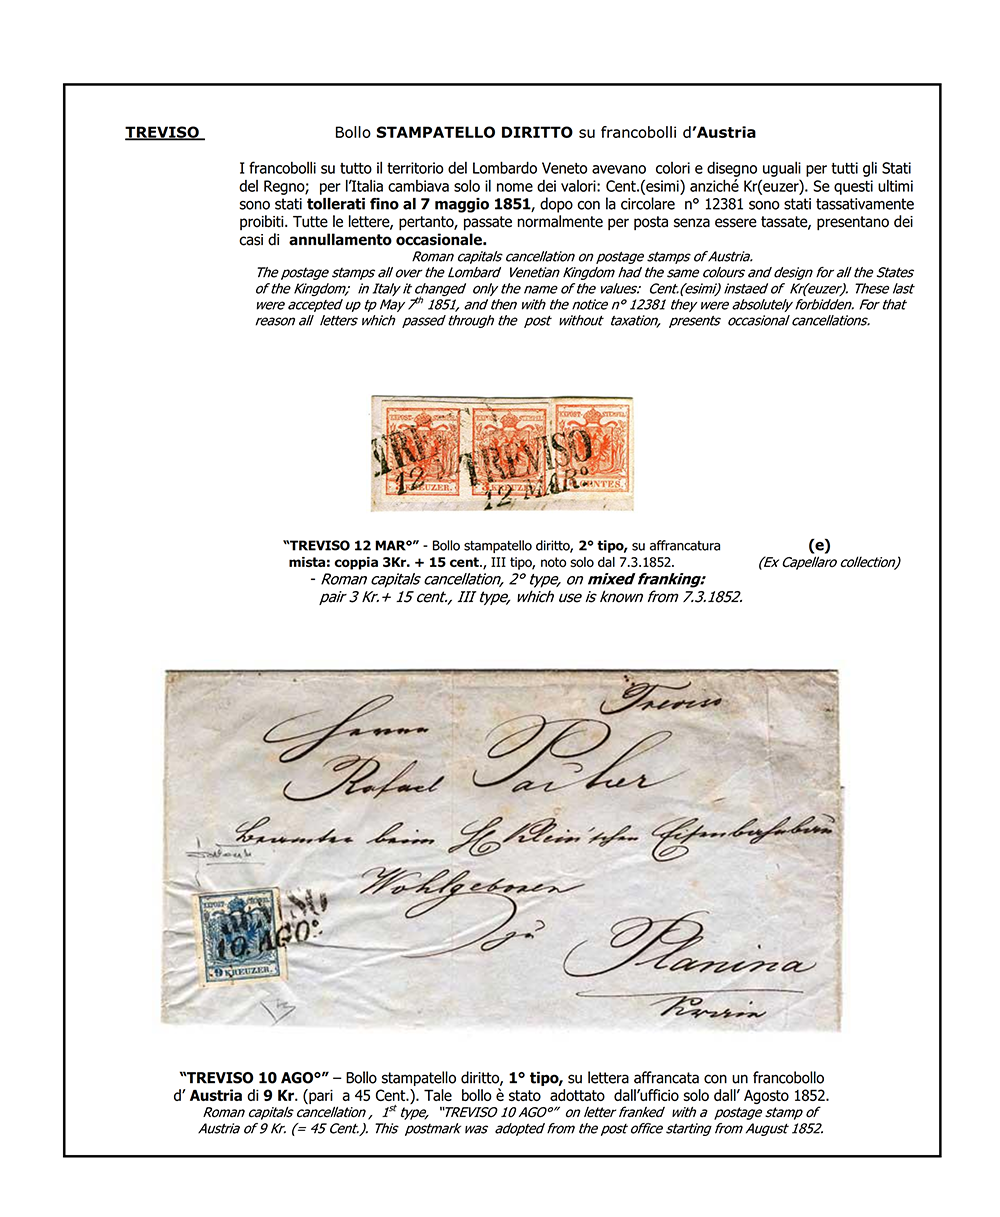 TREVISO Bollo STAMPATELLO DIRITTO su francobolli d’Austria
I francobolli su tutto il territorio del Lombardo Veneto avevano colori e disegno uguali per tutti gli Stati
del Regno; per l’Italia cambiava solo il nome dei valori: Cent.(esimi) anziché Kr(euzer). Se questi ultimi
sono stati tollerati fino al 7 maggio 1851, dopo con la circolare n° 12381 sono stati tassativamente
proibiti. Tutte le lettere, pertanto, passate normalmente per posta senza essere tassate, presentano dei
casi di annullamento occasionale.
Roman capitals cancellation on postage stamps of Austria.
The postage stamps all over the Lombard Venetian Kingdom had the same colours and design for all the States
of the Kingdom; in Italy it changed only the name of the values: Cent.(esimi) instaed of Kr(euzer). These last
were accepted up tp May 7th 1851, and then with the notice n° 12381 they were absolutely forbidden. For that
reason all letters which passed through the post without taxation, presents occasional cancellations.
KREUZER. 3 KREUZER. CENTES.
TRE TREVISO
12 M 12 MAR°
“TREVISO 12 MAR°” - Bollo stampatello diritto, 2° tipo, su affrancatura (e)
mista: coppia 3Kr. + 15 cent., III tipo, noto solo dal 7.3.1852. (Ex Capellaro collection)
- Roman capitals cancellation, 2° type, on mixed franking:
pair 3 Kr.+ 15 cent., III type, which use is known from 7.3.1852.
Treviso
Herrn
Rafael Pauber
Beamter beim Klein'schen Eisenbahnbau
Wohlgeboren
zu
Planina
Krain
TREVISO
10. AGO°
9 KREUZER.
“TREVISO 10 AGO°” – Bollo stampatello diritto, 1° tipo, su lettera affrancata con un francobollo
d’ Austria di 9 Kr. (pari a 45 Cent.). Tale bollo è stato adottato dall’ufficio solo dall’ Agosto 1852.
Roman capitals cancellation , 1st type, “TREVISO 10 AGO°” on letter franked with a postage stamp of
Austria of 9 Kr. (= 45 Cent.). This postmark was adopted from the post office starting from August 1852.